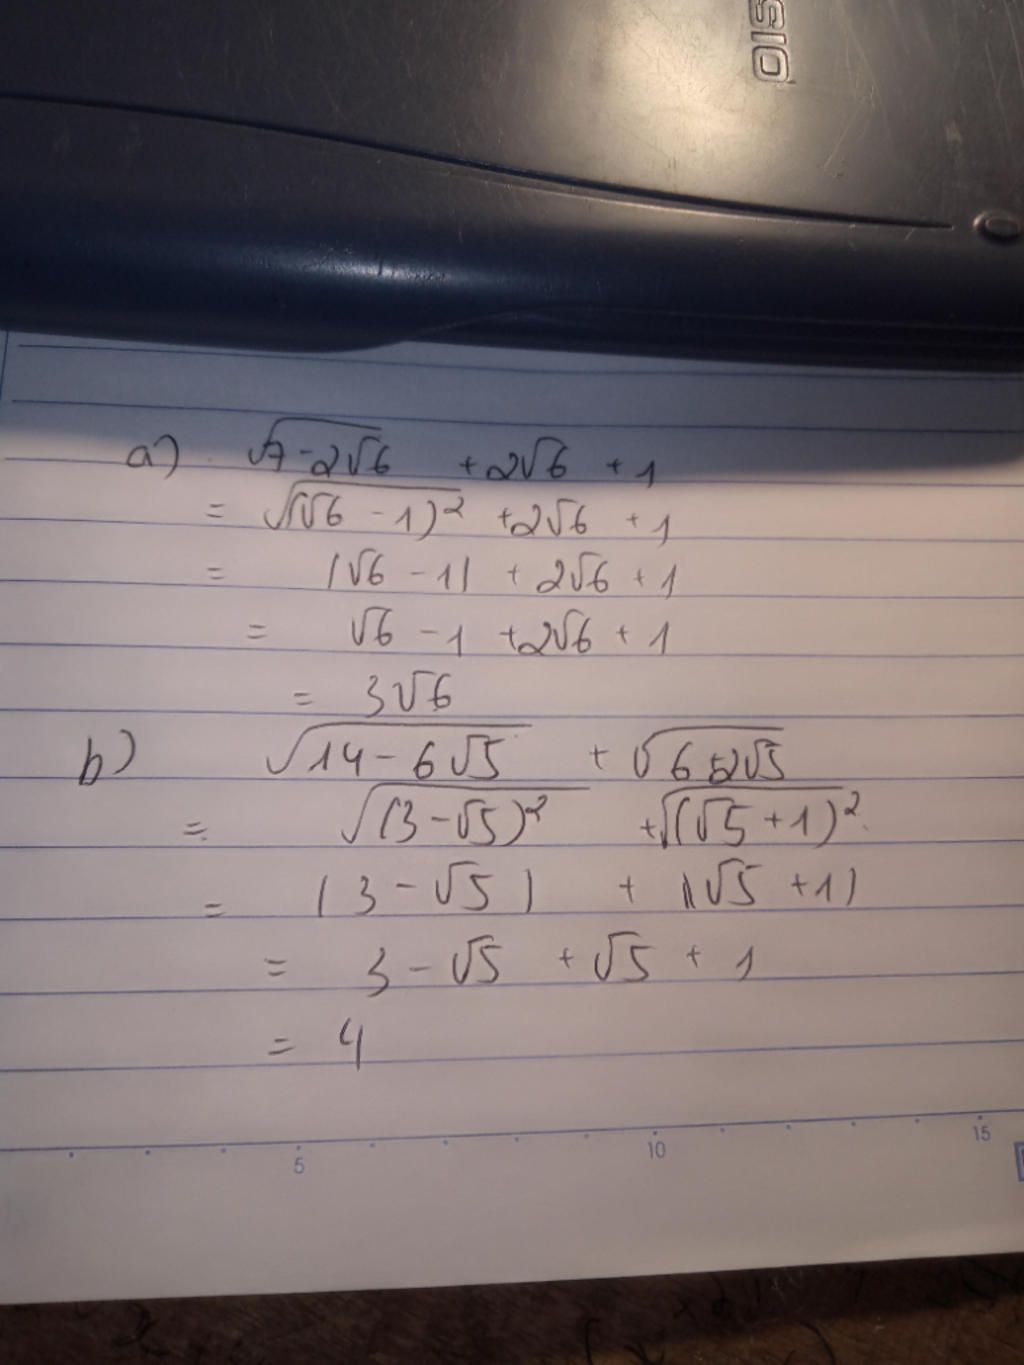 SIO
a) √7-2√6 + 2√6 + 1
= √(√6 - 1)² + 2√6 + 1
= |√6 - 1| + 2√6 + 1
= √6 - 1 + 2√6 + 1
= 3√6
b) √14 - 6√5 + √6 + 2√5
= √(3 - √5)² + √(√5 + 1)²
= |3 - √5| + |√5 + 1|
= 3 - √5 + √5 + 1
= 4
5 10 15